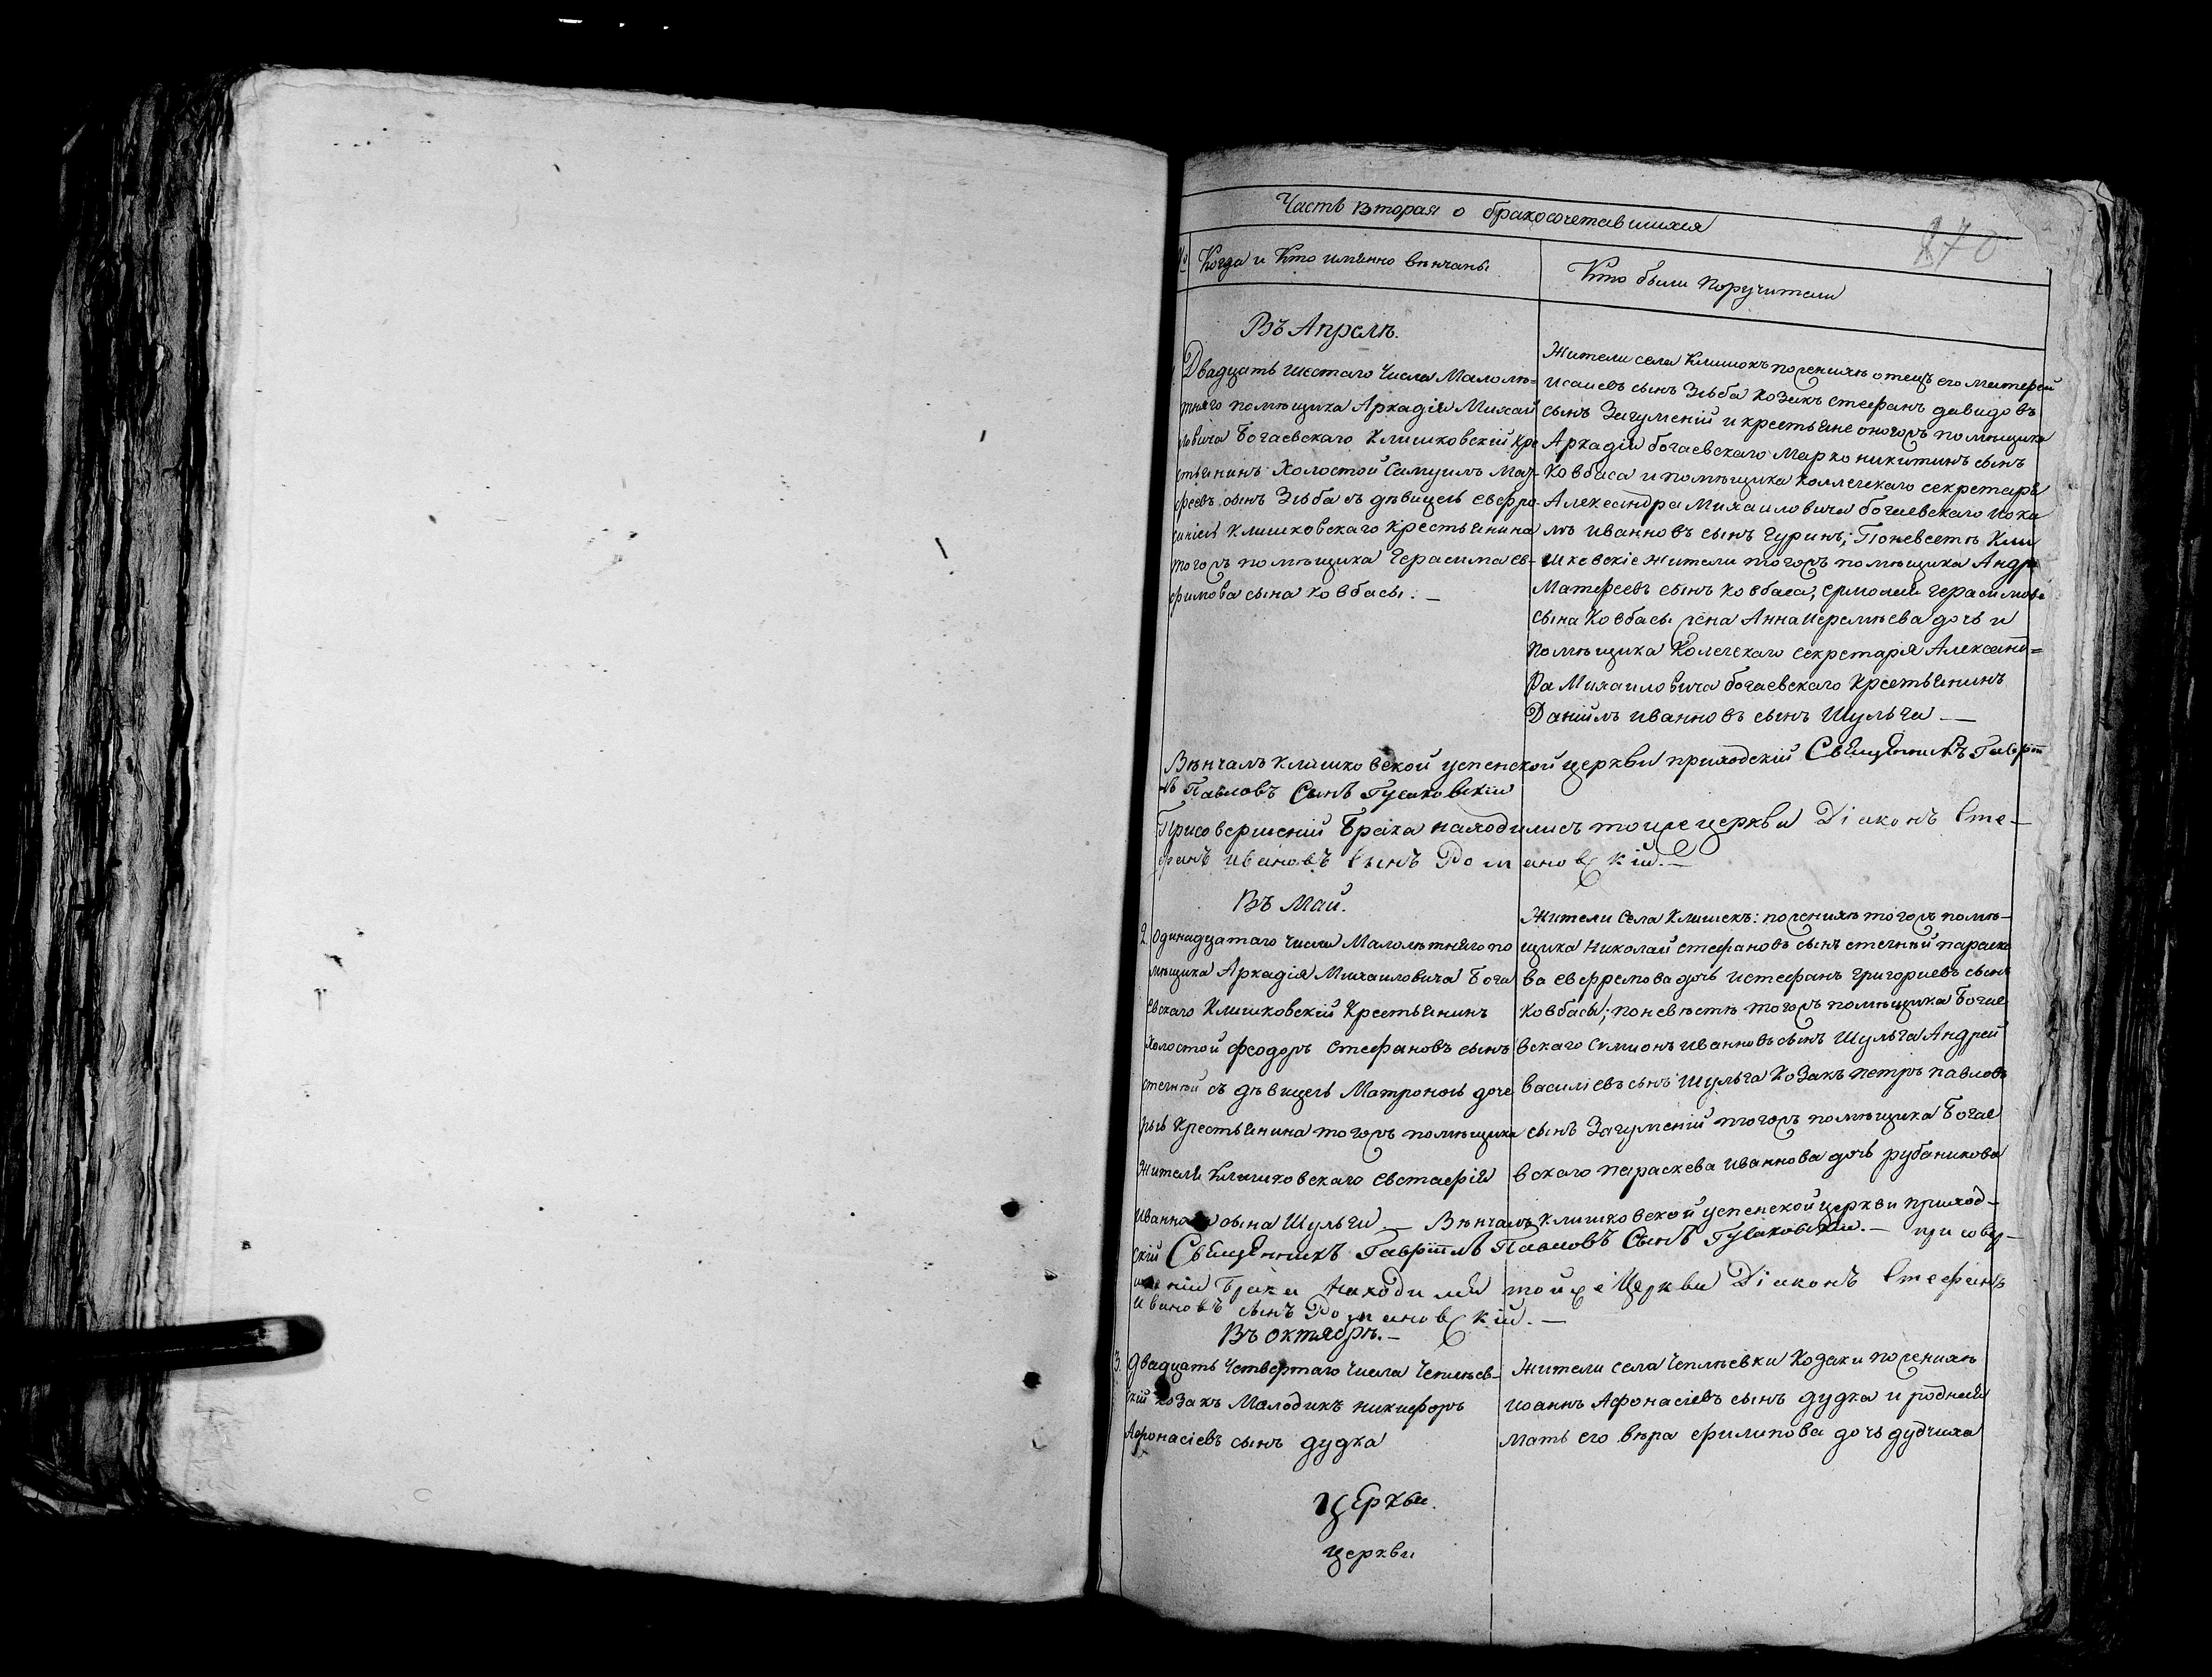 Часть вторая о бракосочетавшихся
270
№ Когда и Кто имянно венчаны
Кто были поручители
Въ Апрелѣ.
Двадцать шестаго Числа Малолѣ-
тняго помѣщика Аркадія Михай
ловича Богаевскаго Клишковскій кре
стьянинъ Холостой Самуилъ Мат-
феевъ сынъ Зѣба съ дѣвицею евфро-
синіею Клишковскаго Крестьянина
того жъ помѣщика Герасима ев-
фимова сына Ковбасы. —
Жители села Клишокъ по женихѣ отецъ его матфей
Исаиевъ сынъ Зѣба козакъ стефанъ давидовъ
сынъ Загуменій и крестьяне оногожъ помѣщика
Аркадія богаевскаго Марко никитинъ сынъ
Ковбаса и помѣщика коллежскаго секретаря
Александра Михаиловича богаевскаго иоки
мъ иванновъ сынъ Гуринъ; По невестѣ Кли
шковскіе жители тогожъ помѣщика Андре
Матфеевъ сынъ ковбаса, ермолай герасимова
сына Ковбасы жена Анна иеремѣева дочь и
помѣщика Колежскаго секретаря Александ=
ра Михаиловича богаевскаго Крестьянинъ
Даніилъ иванновъ сынъ Шульга —
Вѣнчалъ клишковской успенской церкви приходскій Священникъ Гаврїи
лъ Павловъ Сынъ Гусаковскій
При совершеній Брака находились тоиже церкви Діаконъ Сте-
фанъ Ивановъ Сынъ Романовскій. —
Въ Маи.
2. Одинадцатаго числа Малолѣтняго по
мѣщика Аркадія Михаиловича Бога
евскаго Клишковскій Крестьянинъ
холостой феодоръ Стефановъ сынъ
стегній съ дѣвицею Матроною доче
рью Крестьянина тогожъ помѣщика
жителя Клишковскаго Евстафія
Иваннова сына Шульги. — Вѣнчалъ клишковской успенской церкви приход-
Жители Села Клишекъ: по женихѣ тогожъ помѣ-
щика Николай стефановъ сынъ стегній параске
ва евфремова дочь и стефанъ григориевъ сынъ
Ковбаса; по невѣстѣ тогожъ помѣщика Богае
вскаго симионъ иванновъ сынъ Шульга Андрей
василіевъ сынъ шульга козакъ петръ павловъ
сынъ Загуменій тогожъ помѣщика Богае
вскаго параскева иваннова дочь рубаникова
скій Священникъ Гаврїилъ Павловъ Сынъ Гусаковскій. — При совер-
шеніи Брака Находились тоиже Церкви Діаконъ Стефанъ
Ивановъ сынъ Романовскій. —
Въ октябрѣ. —
3. Двадцать Четвертаго числа Чеплѣев-
скій козакъ Молодикъ никифоръ
Афонасіевъ сынъ дудка
Жители села Чеплѣевки Козаки по женихѣ
иоаннъ Афонасіевъ сынъ дудка и родная
мать его вѣра филипова дочь дудчиха
Церкви.
церкви